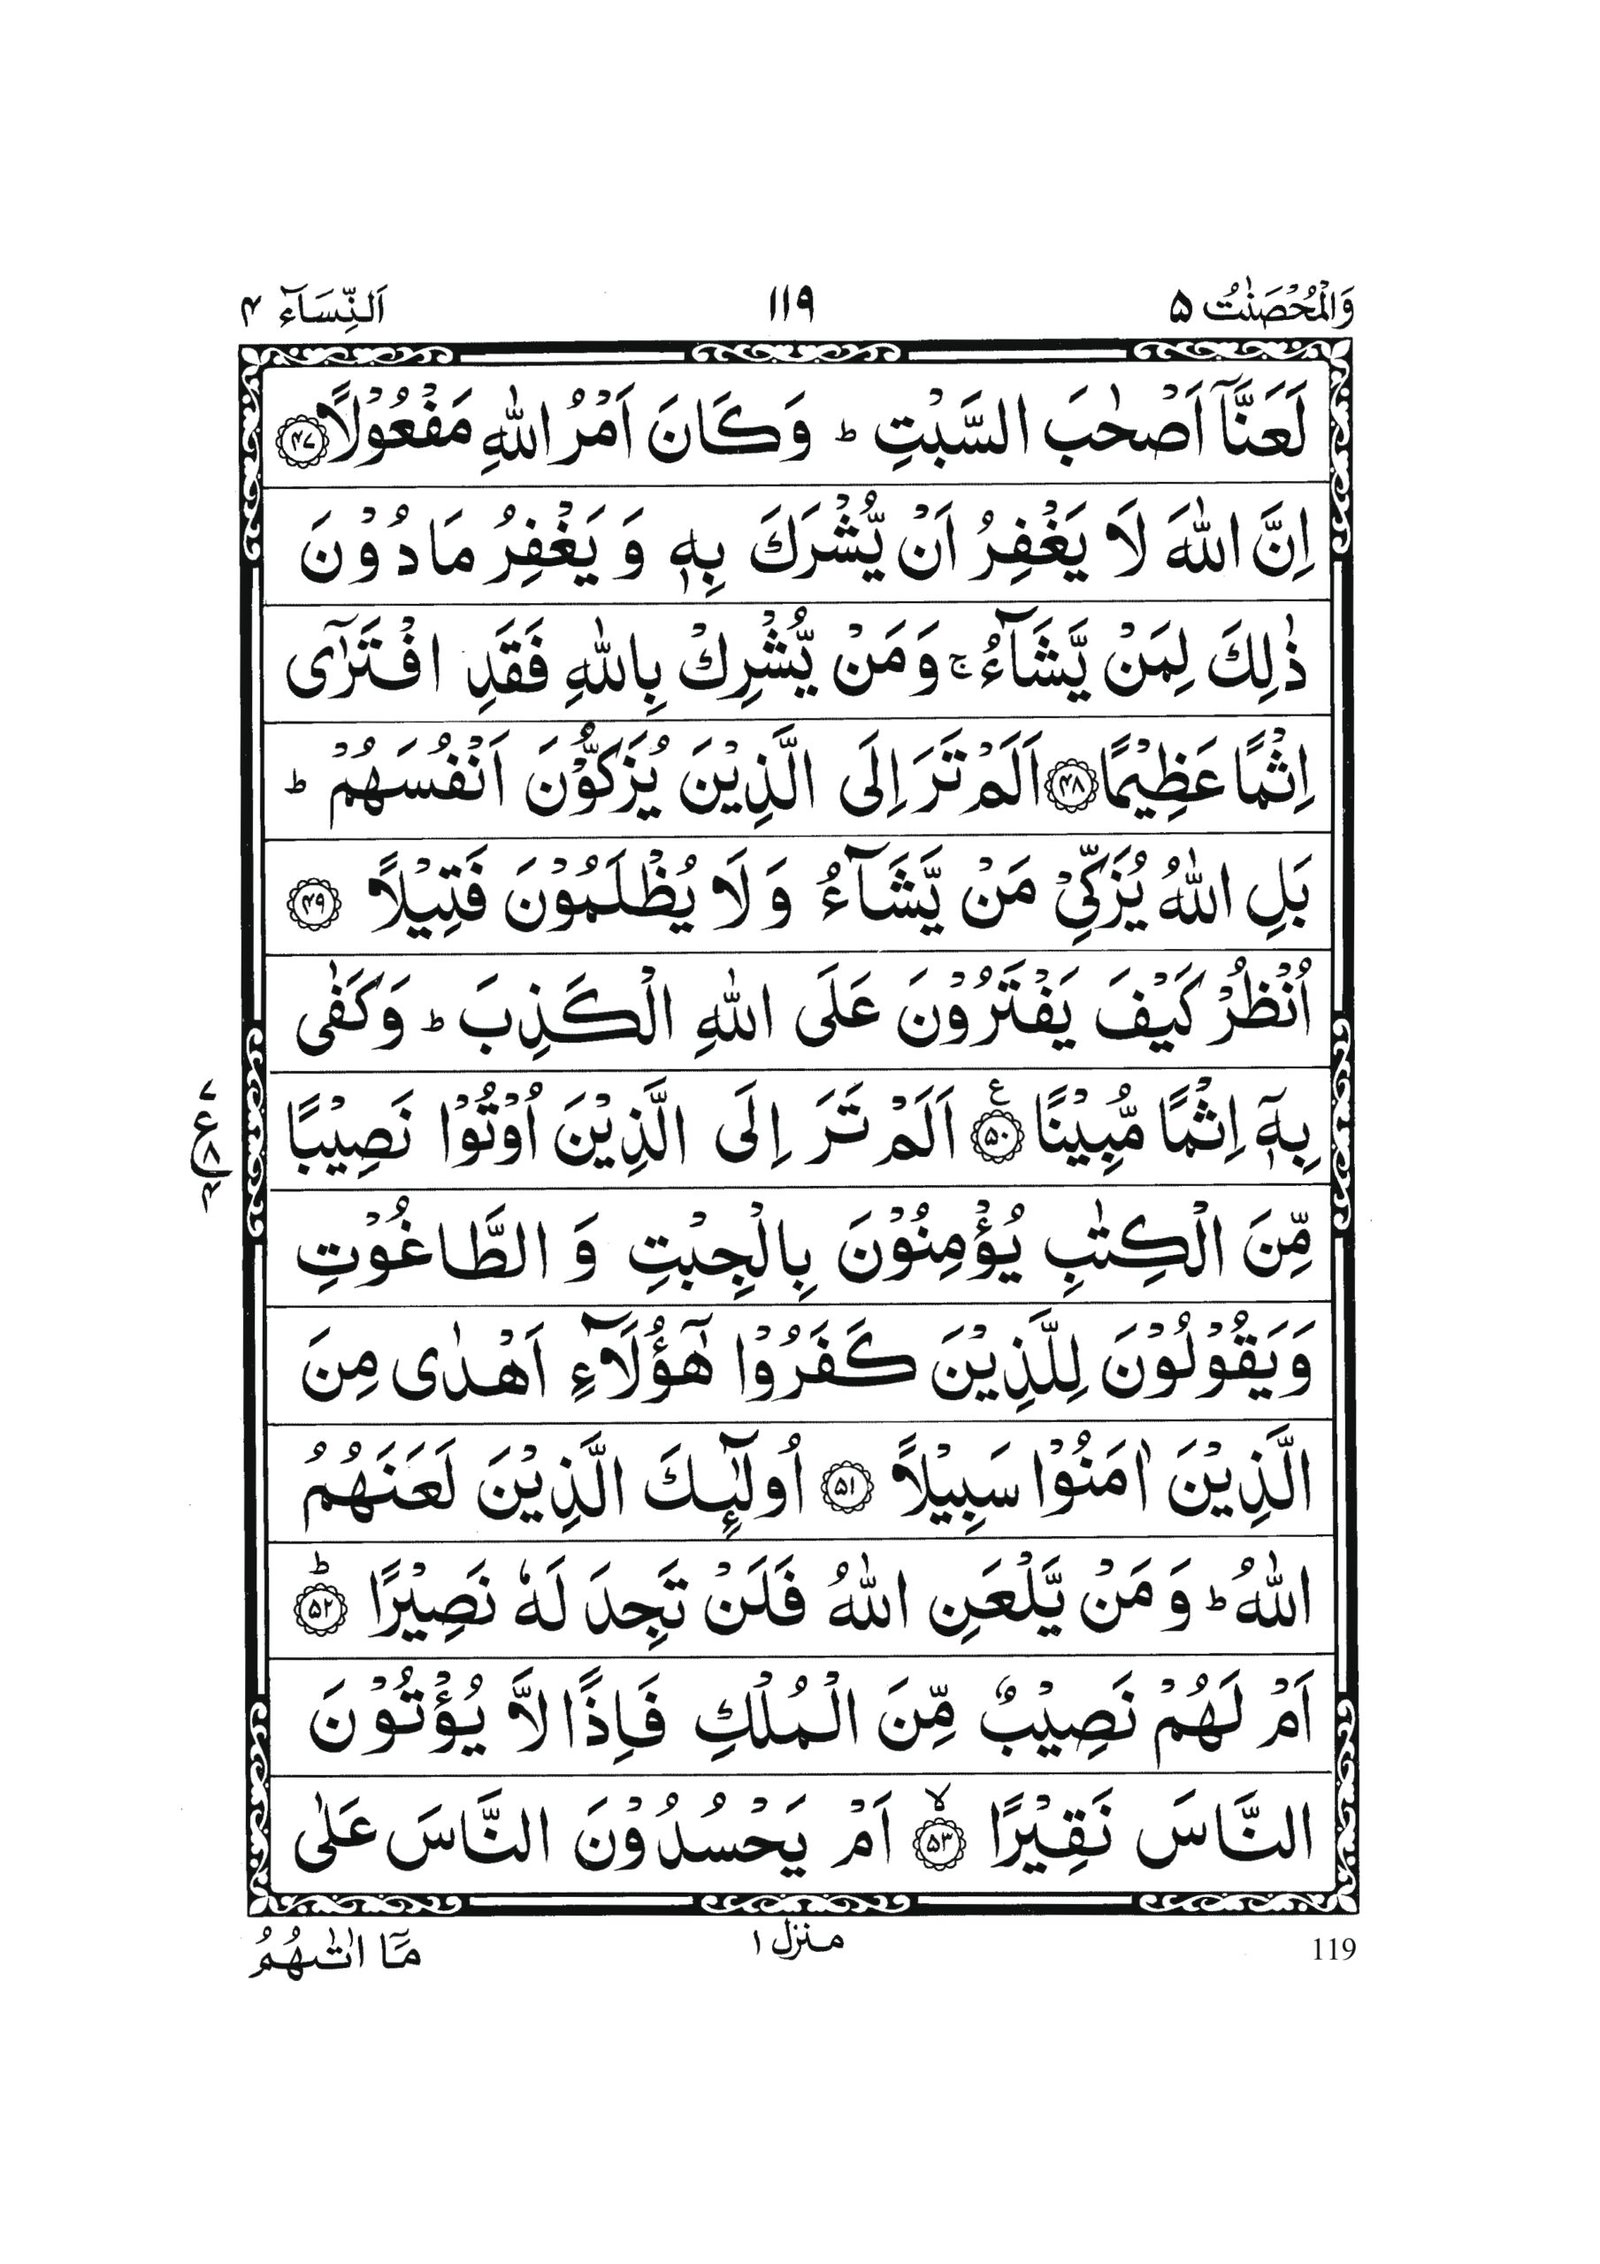 وَالْمُحْصَنٰتُ ۵ ۱۱۹ اَلنِّسَآء ۴
لَعَنَّآ اَصْحٰبَ السَّبْتِ ؕ وَكَانَ اَمْرُ اللّٰهِ مَفْعُوْلًا ﴿۴۷﴾
اِنَّ اللّٰهَ لَا يَغْفِرُ اَنْ يُّشْرَكَ بِهٖ وَ يَغْفِرُ مَا دُوْنَ
ذٰلِكَ لِمَنْ يَّشَآءُ ۚ وَمَنْ يُّشْرِكْ بِاللّٰهِ فَقَدِ افْتَرٰٓى
اِثْمًا عَظِيْمًا ﴿۴۸﴾ اَلَمْ تَرَ اِلَى الَّذِيْنَ يُزَكُّوْنَ اَنْفُسَهُمْ ؕ
بَلِ اللّٰهُ يُزَكِّيْ مَنْ يَّشَآءُ وَ لَا يُظْلَمُوْنَ فَتِيْلًا ﴿۴۹﴾
اُنْظُرْ كَيْفَ يَفْتَرُوْنَ عَلَى اللّٰهِ الْكَذِبَ ؕ وَكَفٰى
بِهٖٓ اِثْمًا مُّبِيْنًا ﴿۵۰﴾ ع اَلَمْ تَرَ اِلَى الَّذِيْنَ اُوْتُوْا نَصِيْبًا
۷ ع ۸ ۴
مِّنَ الْكِتٰبِ يُؤْمِنُوْنَ بِالْجِبْتِ وَ الطَّاغُوْتِ
وَيَقُوْلُوْنَ لِلَّذِيْنَ كَفَرُوْا هٰٓؤُلَآءِ اَهْدٰى مِنَ
الَّذِيْنَ اٰمَنُوْا سَبِيْلًا ﴿۵۱﴾ اُولٰٓئِكَ الَّذِيْنَ لَعَنَهُمُ
اللّٰهُ ؕ وَ مَنْ يَّلْعَنِ اللّٰهُ فَلَنْ تَجِدَ لَهٗ نَصِيْرًا ﴿۵۲﴾ ؕ
اَمْ لَهُمْ نَصِيْبٌ مِّنَ الْمُلْكِ فَاِذًا لَّا يُؤْتُوْنَ
النَّاسَ نَقِيْرًا ﴿۵۳﴾ ۙ اَمْ يَحْسُدُوْنَ النَّاسَ عَلٰى
119 منزل ۱ مَآ اٰتٰىهُمُ